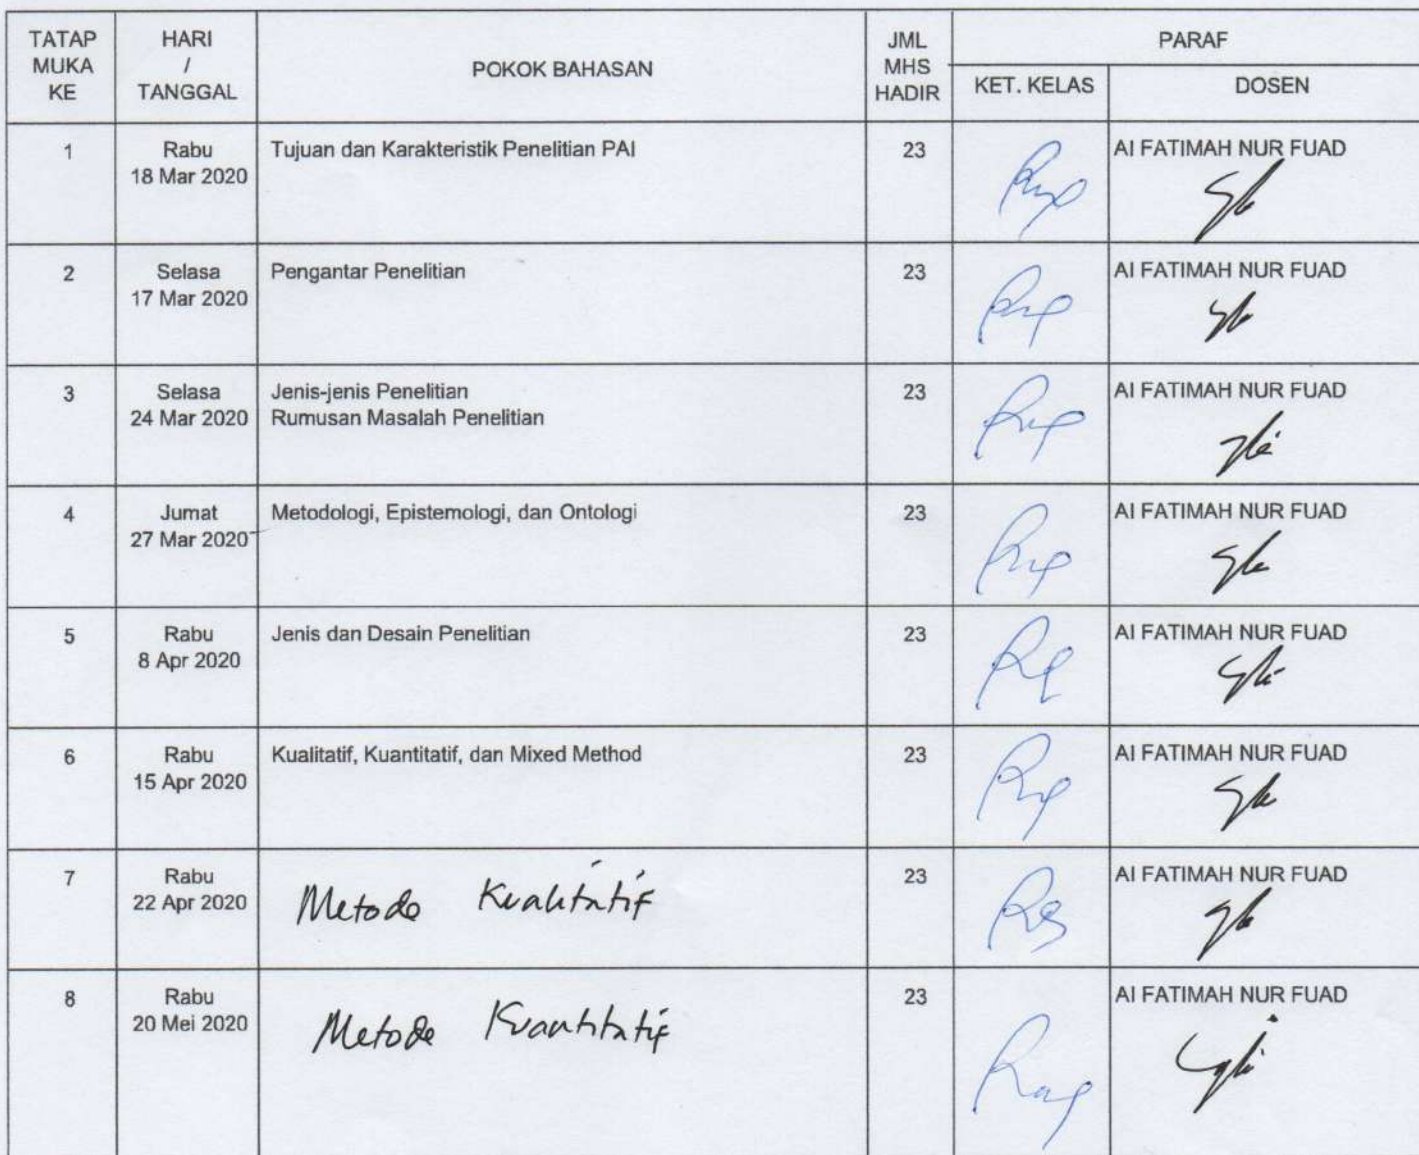 TATAP MUKA KE
HARI / TANGGAL
POKOK BAHASAN
JML MHS HADIR
PARAF
KET. KELAS
DOSEN
1
Rabu
18 Mar 2020
Tujuan dan Karakteristik Penelitian PAI
23
AI FATIMAH NUR FUAD
2
Selasa
17 Mar 2020
Pengantar Penelitian
23
AI FATIMAH NUR FUAD
3
Selasa
24 Mar 2020
Jenis-jenis Penelitian
Rumusan Masalah Penelitian
23
AI FATIMAH NUR FUAD
4
Jumat
27 Mar 2020
Metodologi, Epistemologi, dan Ontologi
23
AI FATIMAH NUR FUAD
5
Rabu
8 Apr 2020
Jenis dan Desain Penelitian
23
AI FATIMAH NUR FUAD
6
Rabu
15 Apr 2020
Kualitatif, Kuantitatif, dan Mixed Method
23
AI FATIMAH NUR FUAD
7
Rabu
22 Apr 2020
Metode Kualitatif
23
AI FATIMAH NUR FUAD
8
Rabu
20 Mei 2020
Metode Kuantitatif
23
AI FATIMAH NUR FUAD